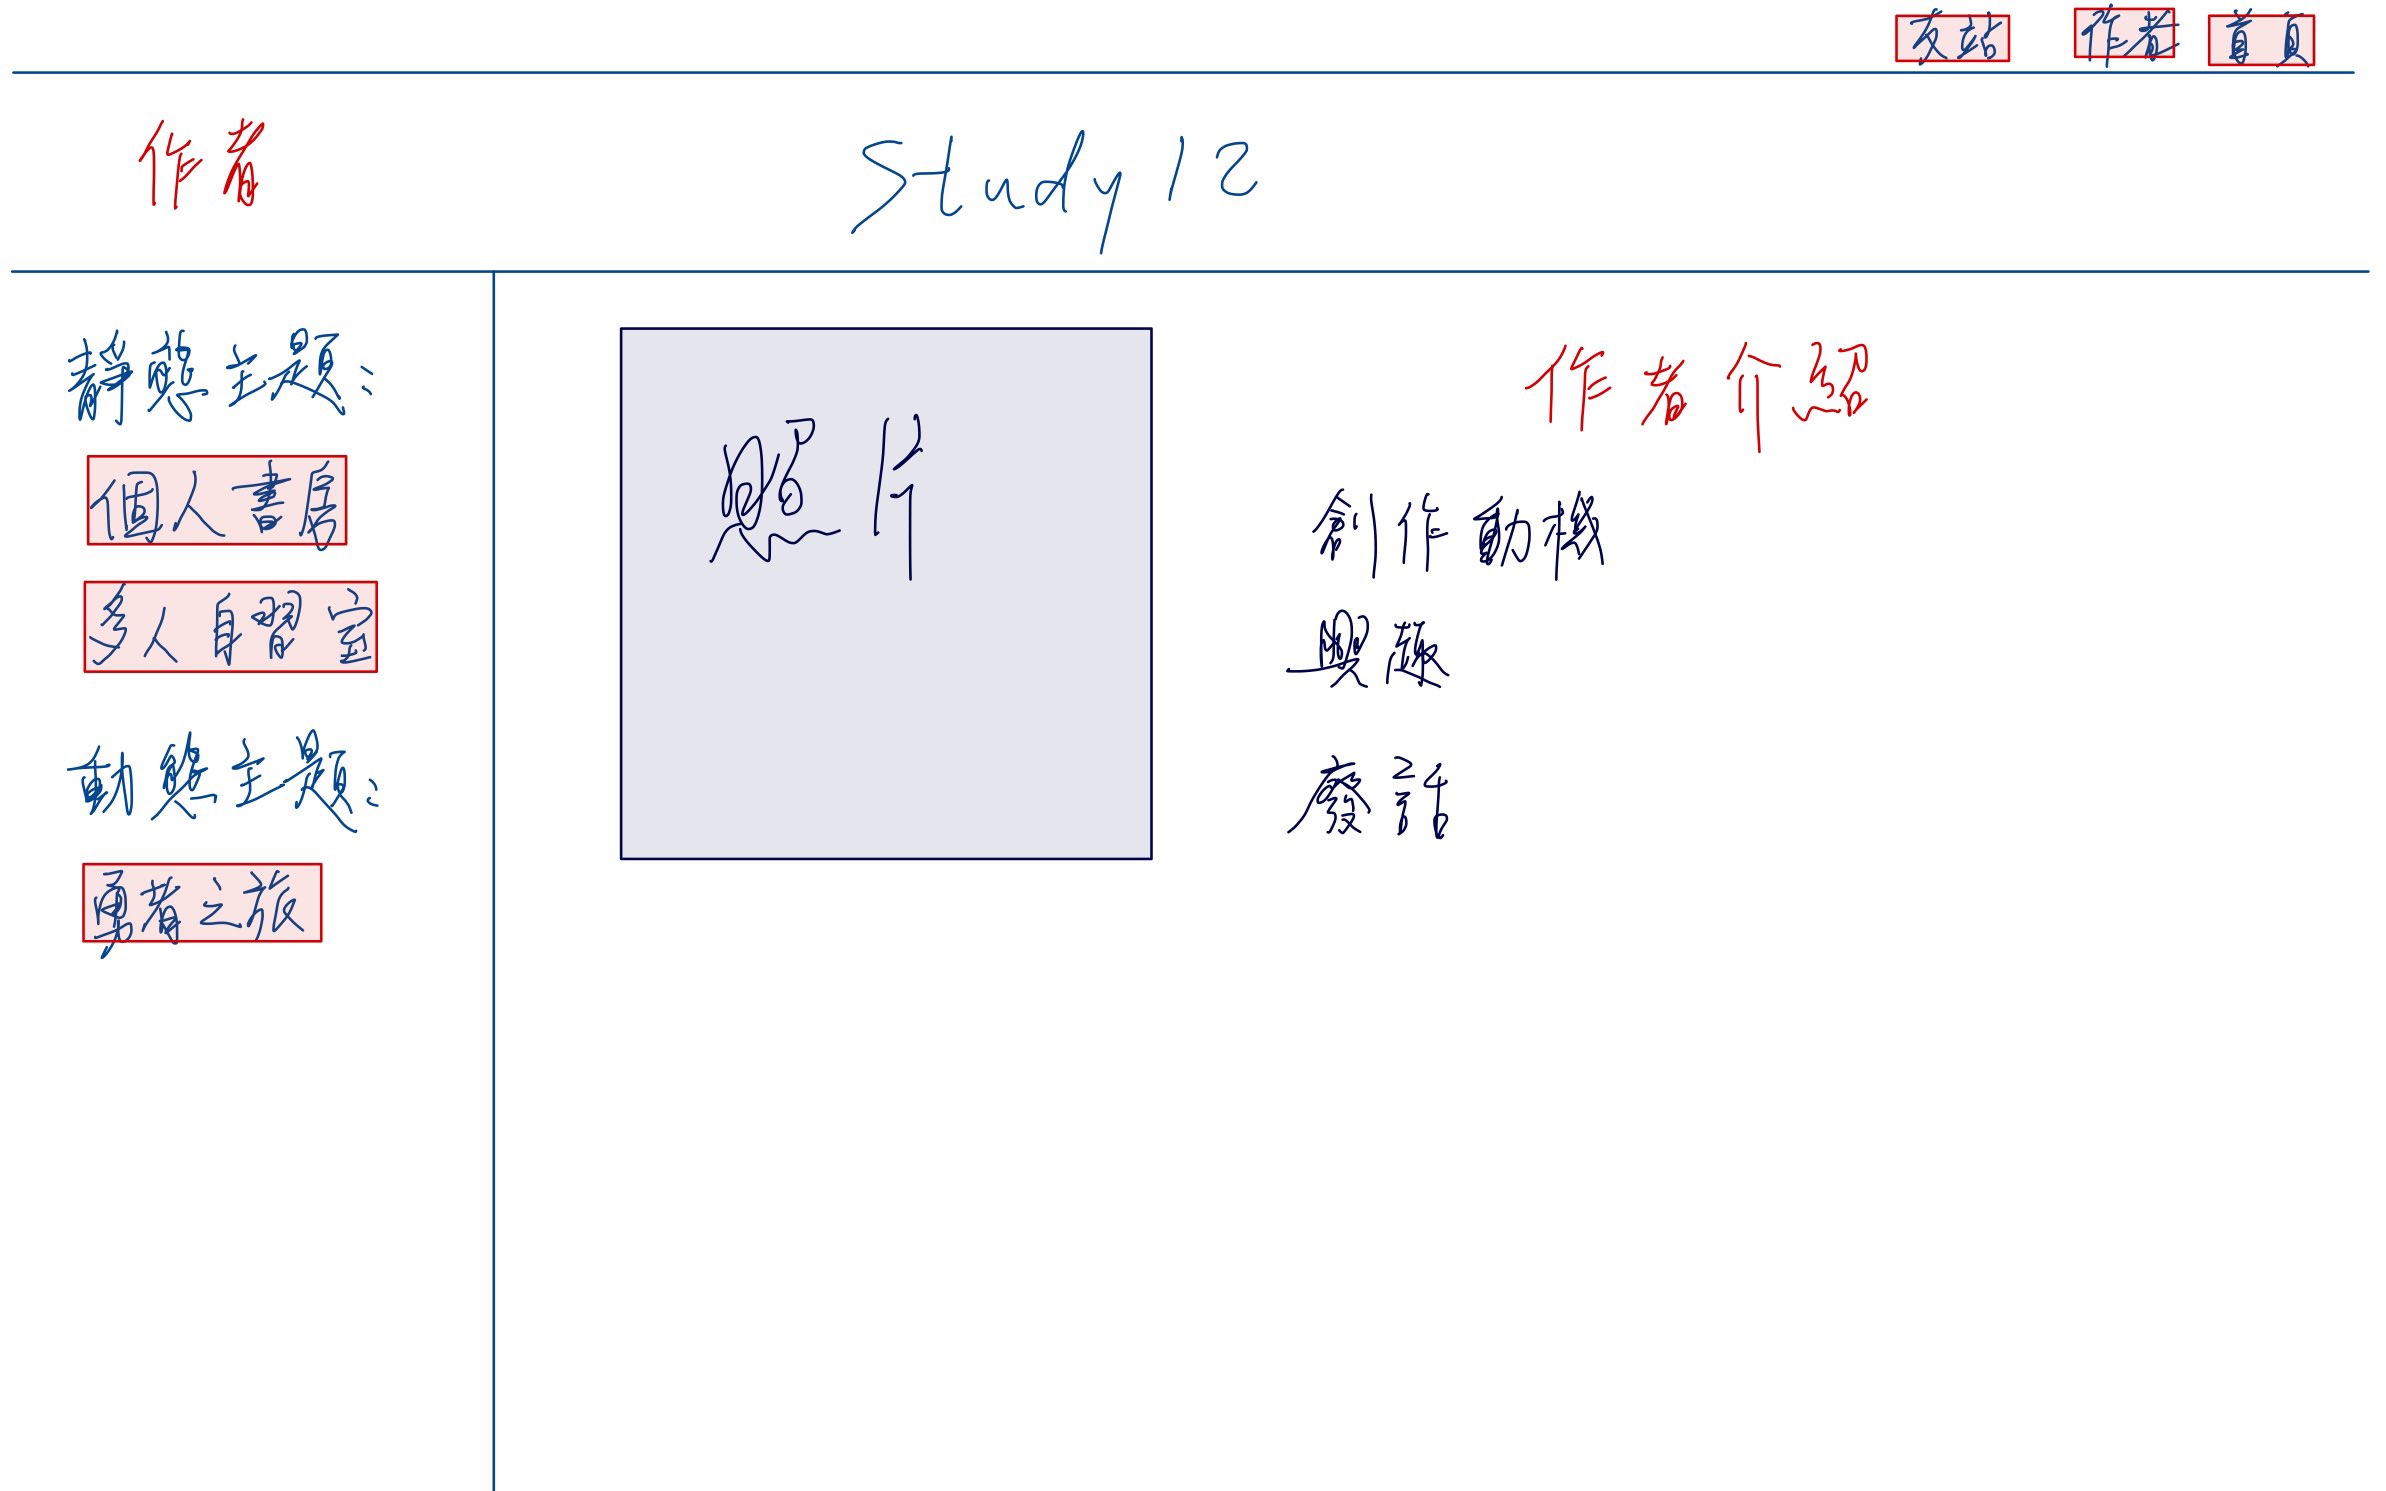 友站 作者 首頁
作者
Study 12
靜態主題:
個人書房
多人自習室
動態主題:
勇者之旅
照片
作者介紹
創作動機
興趣
廢話